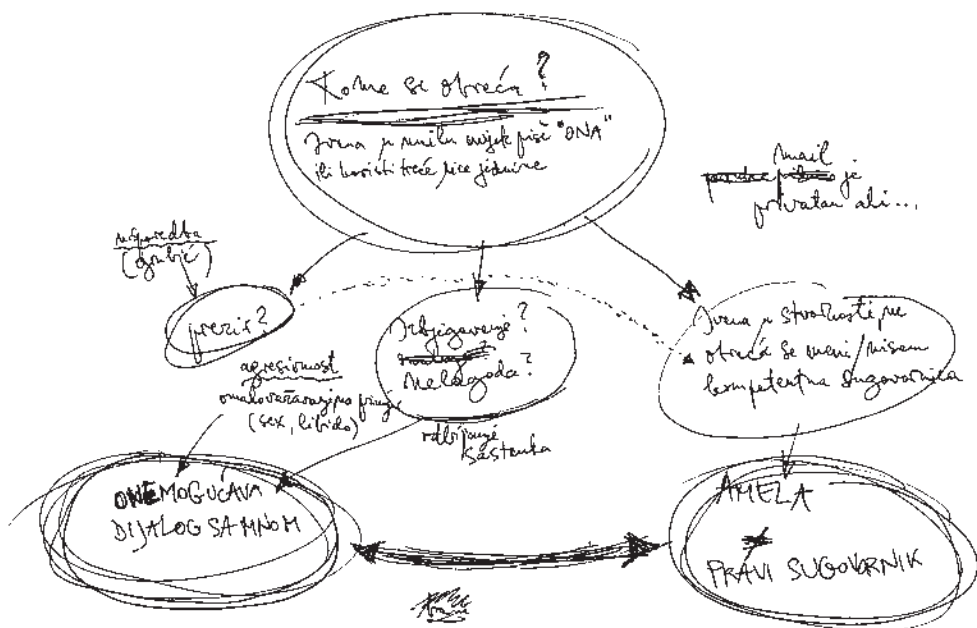 Kome se obraća?
Ivena u mailu uvijek piše "ONA"
ili koristi treće lice jednine
mail
je
privatan ali...
usporedba
(grubić)
prezir?
Izbjegavanje?
Nelagoda?
Ivena u stvarnosti ne
obraća se meni/nisam
kompetentna sugovornica
agresivnost
omalovažavanje po
(sex, libido)
odbijanje
sastanka
ONEMOGUĆAVA
DIJALOG SA MNOM
AMELA
PRAVI SUGOVORNIK